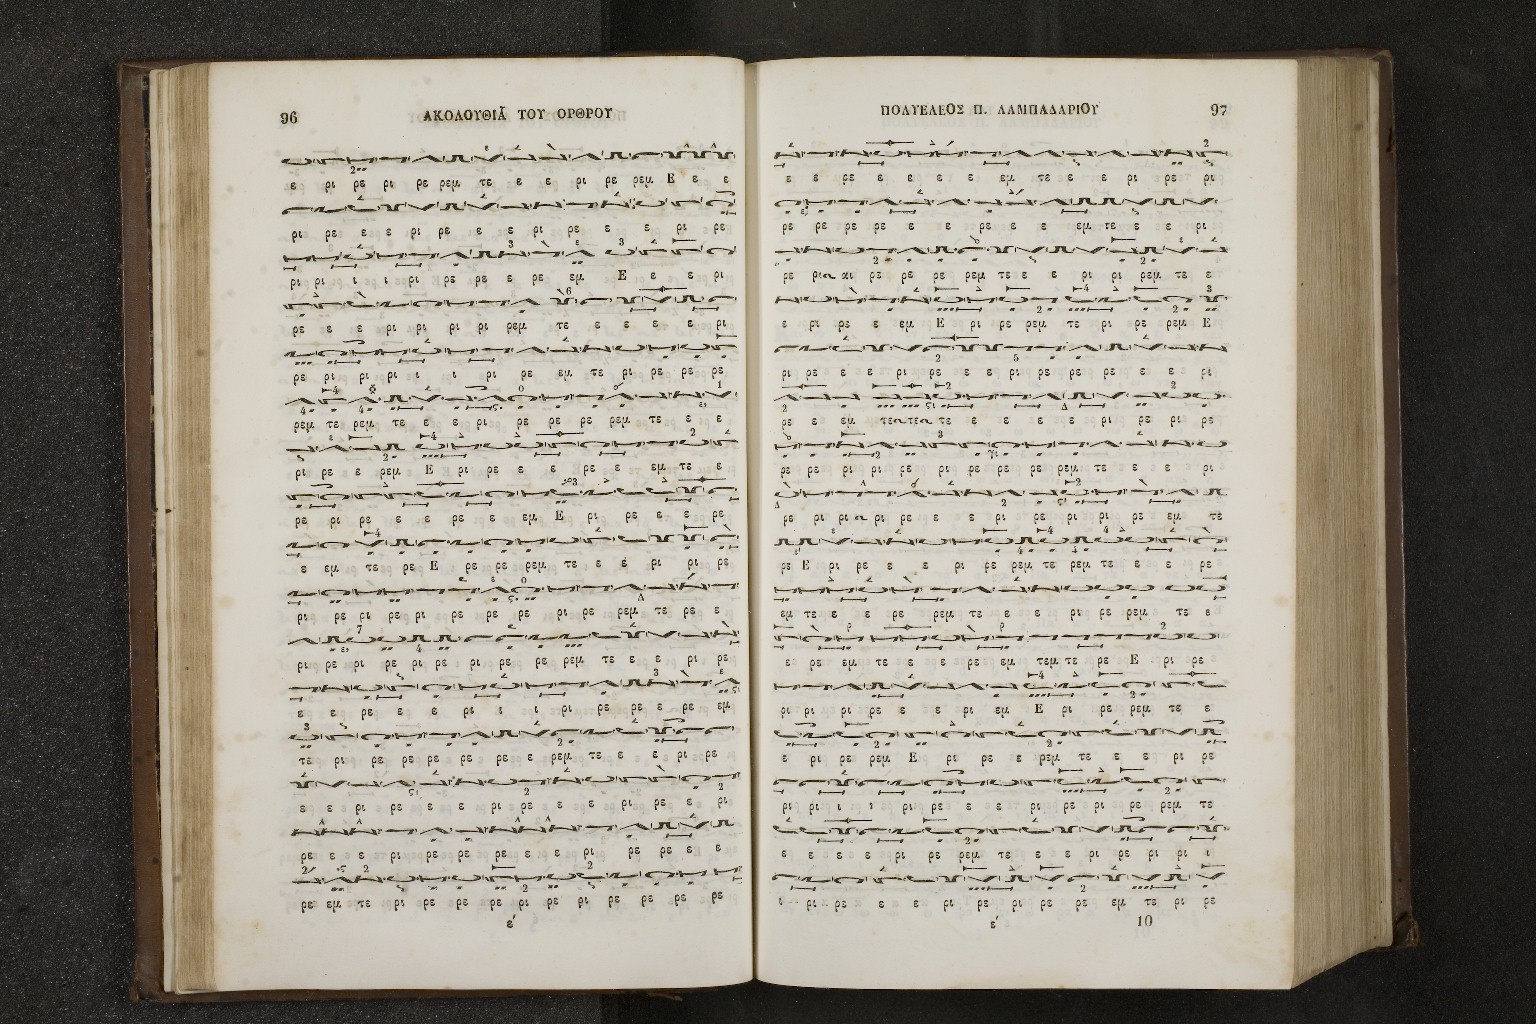 96
ΑΚΟΛΟΥΘΙΑ ΤΟΥ ΟΡΘΡΟΥ
ε ρι ρε ρι ρε ρεμ τε ε ε ρι ρε ρεμ Ε ε ε
ρι ρε ε ε ρι ρε ε ε ρι ρε ε ε ρι ρε
ρι ρι ι ι ρι ρε ρε ε ρε εμ Ε ε ε ρι
ρε ε ε ρι ρι ρι ρι ρεμ τε ε ε ε ε ρι
ρε ρι ρι ρι ι ι ρι ρε εμ τε ρι ρε ρε ρε
ρεμ τε ρεμ τε ε ε ρι ρε ρε ρε ρεμ τε ε ε
ρι ρε ε ρεμ Ε ρι ρε ε ε ρε ε εμ τε ε
ρε ρι ρε ε ε ρε ε εμ Ε ρι ρε ε ε ρε
ε εμ τε ρε Ε ρε ρε ρεμ τε ε ε ρι ρι ρε
ρι ρε ρε ρι ρε ρε ρε ρι ρε ρεμ τε ρε ε
ρι ρε ρι ρε ρι ρε ρι ρε ρε ρεμ τε ε ε ρι ρε
ε ε ρε ε ε ρι ι ι ρι ρε ρε ε ρε εμ
τε ρι ρε ρε ρε ρε ρε ε ρεμ τε ε ε ρι ρε
ε ε ρι ρε ε ε ρι ρε ε ε ρι ρε ε ρι
ρε ε ε ε ρι ρε ρε ρε ε ε ρι ρε ρε ε ε
ρε εμ τε ρι ρε ρε ρε ρι ρε ρε ρε ρε ρε
ε΄
ΠΟΛΥΕΛΕΟΣ Π. ΛΑΜΠΑΔΑΡΙΟΥ
97
ε ε ρε ε ε ε ε εμ τε ε ε ρι ρε ρι
ρε ρε ρε ρε ε ε ρε ε ε εμ τε ε ε ρι
ρε ρι ρε ρε ρε ρεμ τε ε ε ρι ρι ρεμ τε ε
ε ρι ρε ε εμ Ε ρι ρε ρεμ τε ρι ρε ρεμ Ε
ρι ρε ε ε ρι ρε ε ε ρι ρε ρε ρε ε ε ρι
ρε ε εμ τε ε ε ε ε ρι ρε
ρε ρε ρι ρι ρε ρι ρε ρε ρε ρεμ τε ε ε ρι
ρε ρι ρι ρι ρε ε ε ρι ρε ρι ρι ρε εμ τε
ρε Ε ρι ρε ε ε ρι ρε ρεμ τε ρεμ τε ε ε ρε
εμ τε ε ε ρε ρεμ τε ε ε ρι ρε ρεμ τε ε
ε ρε εμ τε ε ε ρε εμ τεμ τε ρε Ε ρι ρε
ρι ρι ρι ρε ε ε ρι εμ Ε ρι ρε ρεμ τε ε
ε ρι ρε ρεμ Ε ρι ρε ε ρεμ τε ε ε ρι ρε
ρι ρι ι ι ρι ρε ε ε ρι ρι ρι ρε ρεμ τε
ε ε ε ε ρι ρε ρεμ τε ε ε ρι ρε ρι ρι ι
ρι ρε ε ε ρι ρε ρι ρε ρε εμ τε ρι ρε
ε΄
10